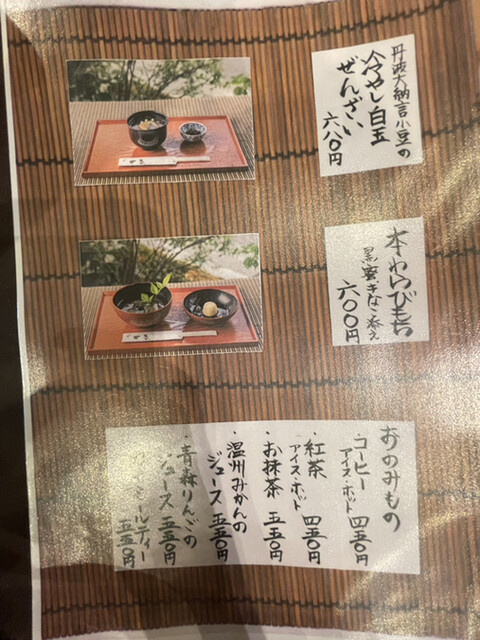 丹波大納言小豆の
冷やし白玉
ぜんざい
六八〇円
本わらびもち
黒蜜きなこ添え
六〇〇円
おのみもの
・コーヒー
アイス・ホット 四五〇円
・紅茶
アイス・ホット 四五〇円
・お抹茶 五五〇円
・温州みかんの
ジュース 五五〇円
・青森りんごの
ジュース 五五〇円
ルティー
五五〇円